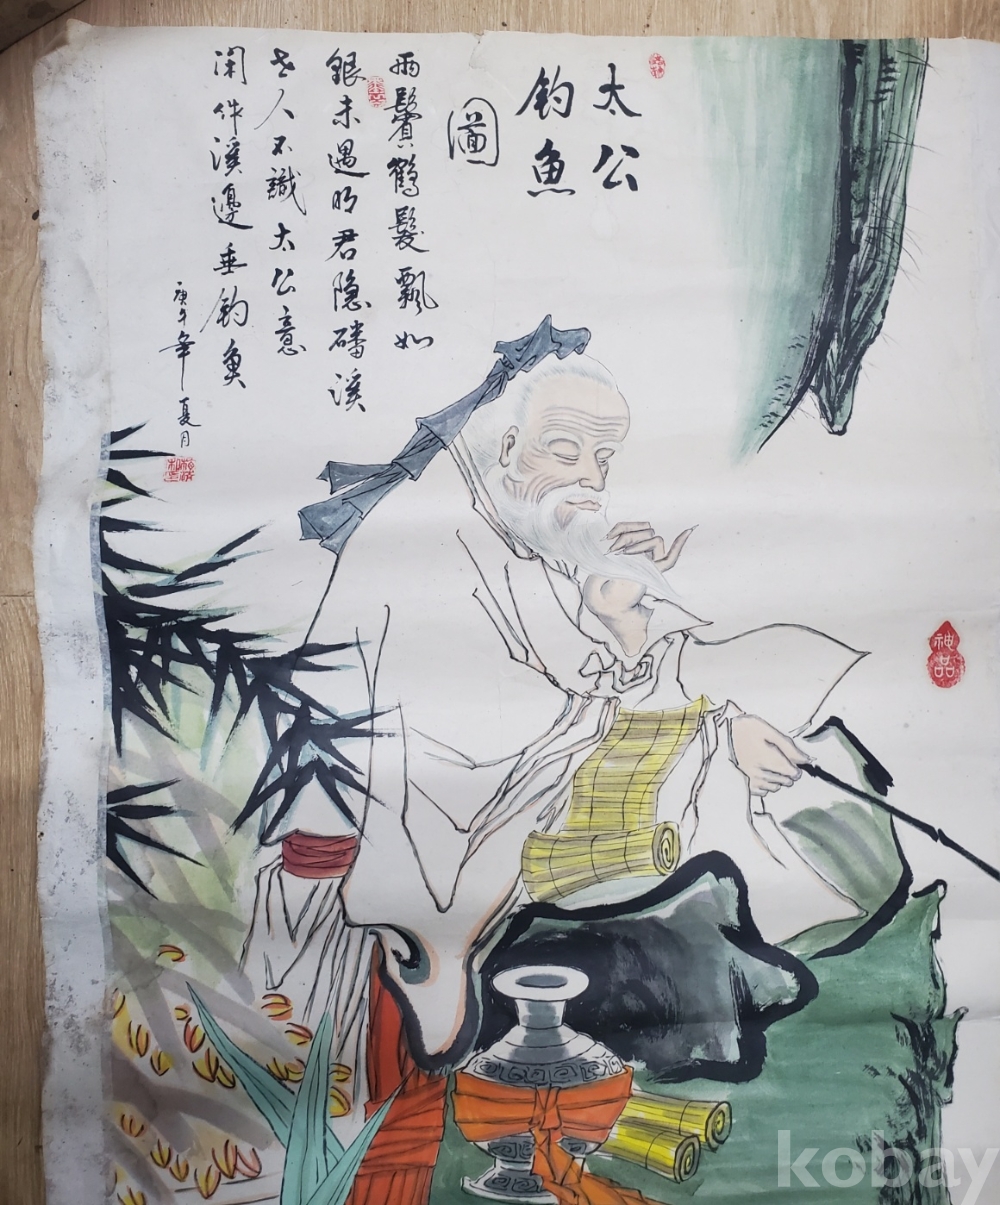 太公
钓魚
圖
兩鬢鶴髮飄如
銀未遇明君隐磻溪
世人不識太公意
閑伴溪邊垂钓魚
庚午年夏月
神品
kobay